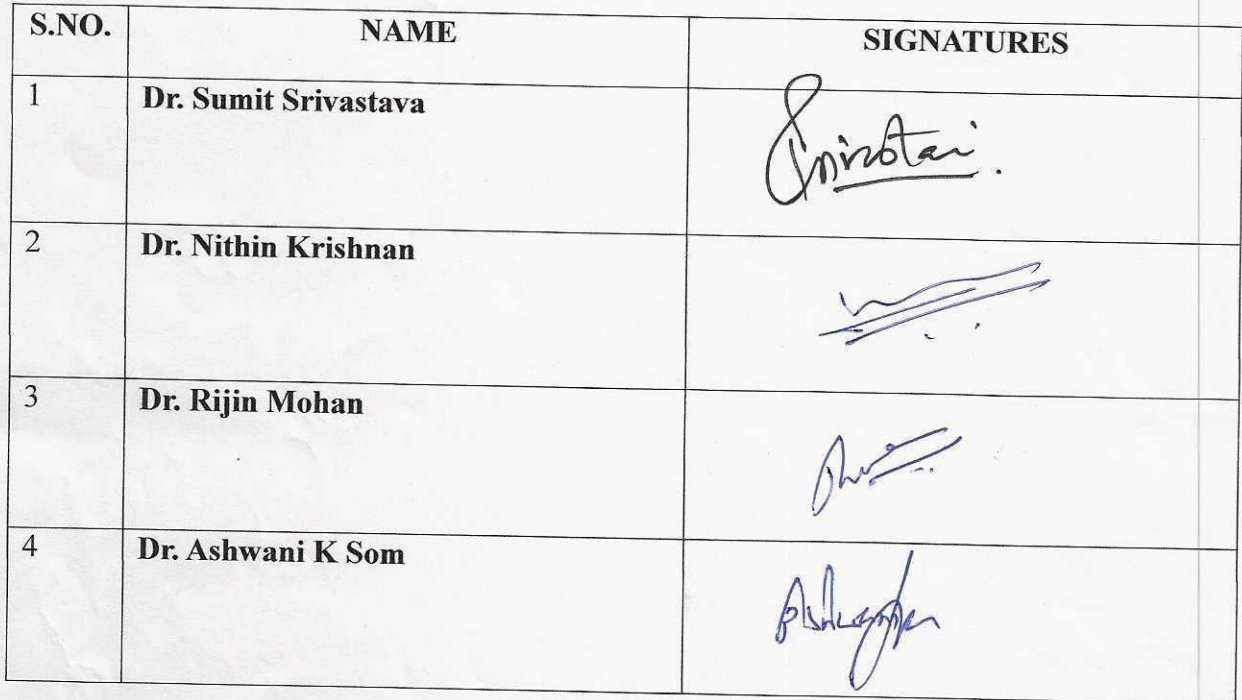 S.NO. NAME SIGNATURES
1 Dr. Sumit Srivastava
2 Dr. Nithin Krishnan
3 Dr. Rijin Mohan
4 Dr. Ashwani K Som